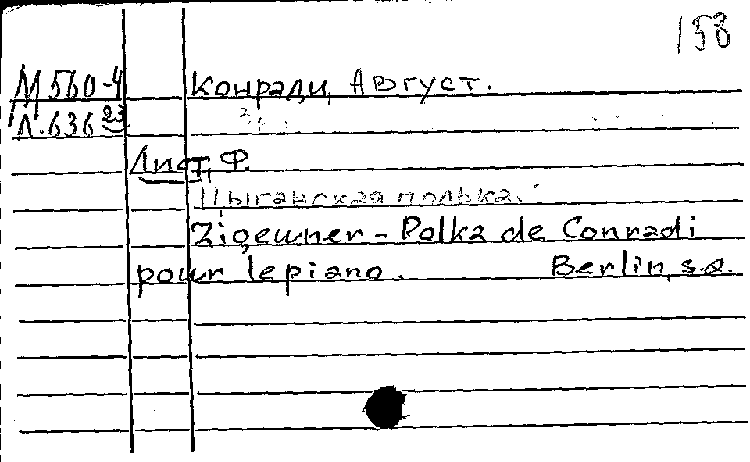 158
М 560-4 Конради, Август.
Л. 636 23
Лист, Ф.
Цыганская полька.
Zigeuner - Polka de Conradi
pour le piano. Berlin, s.a.